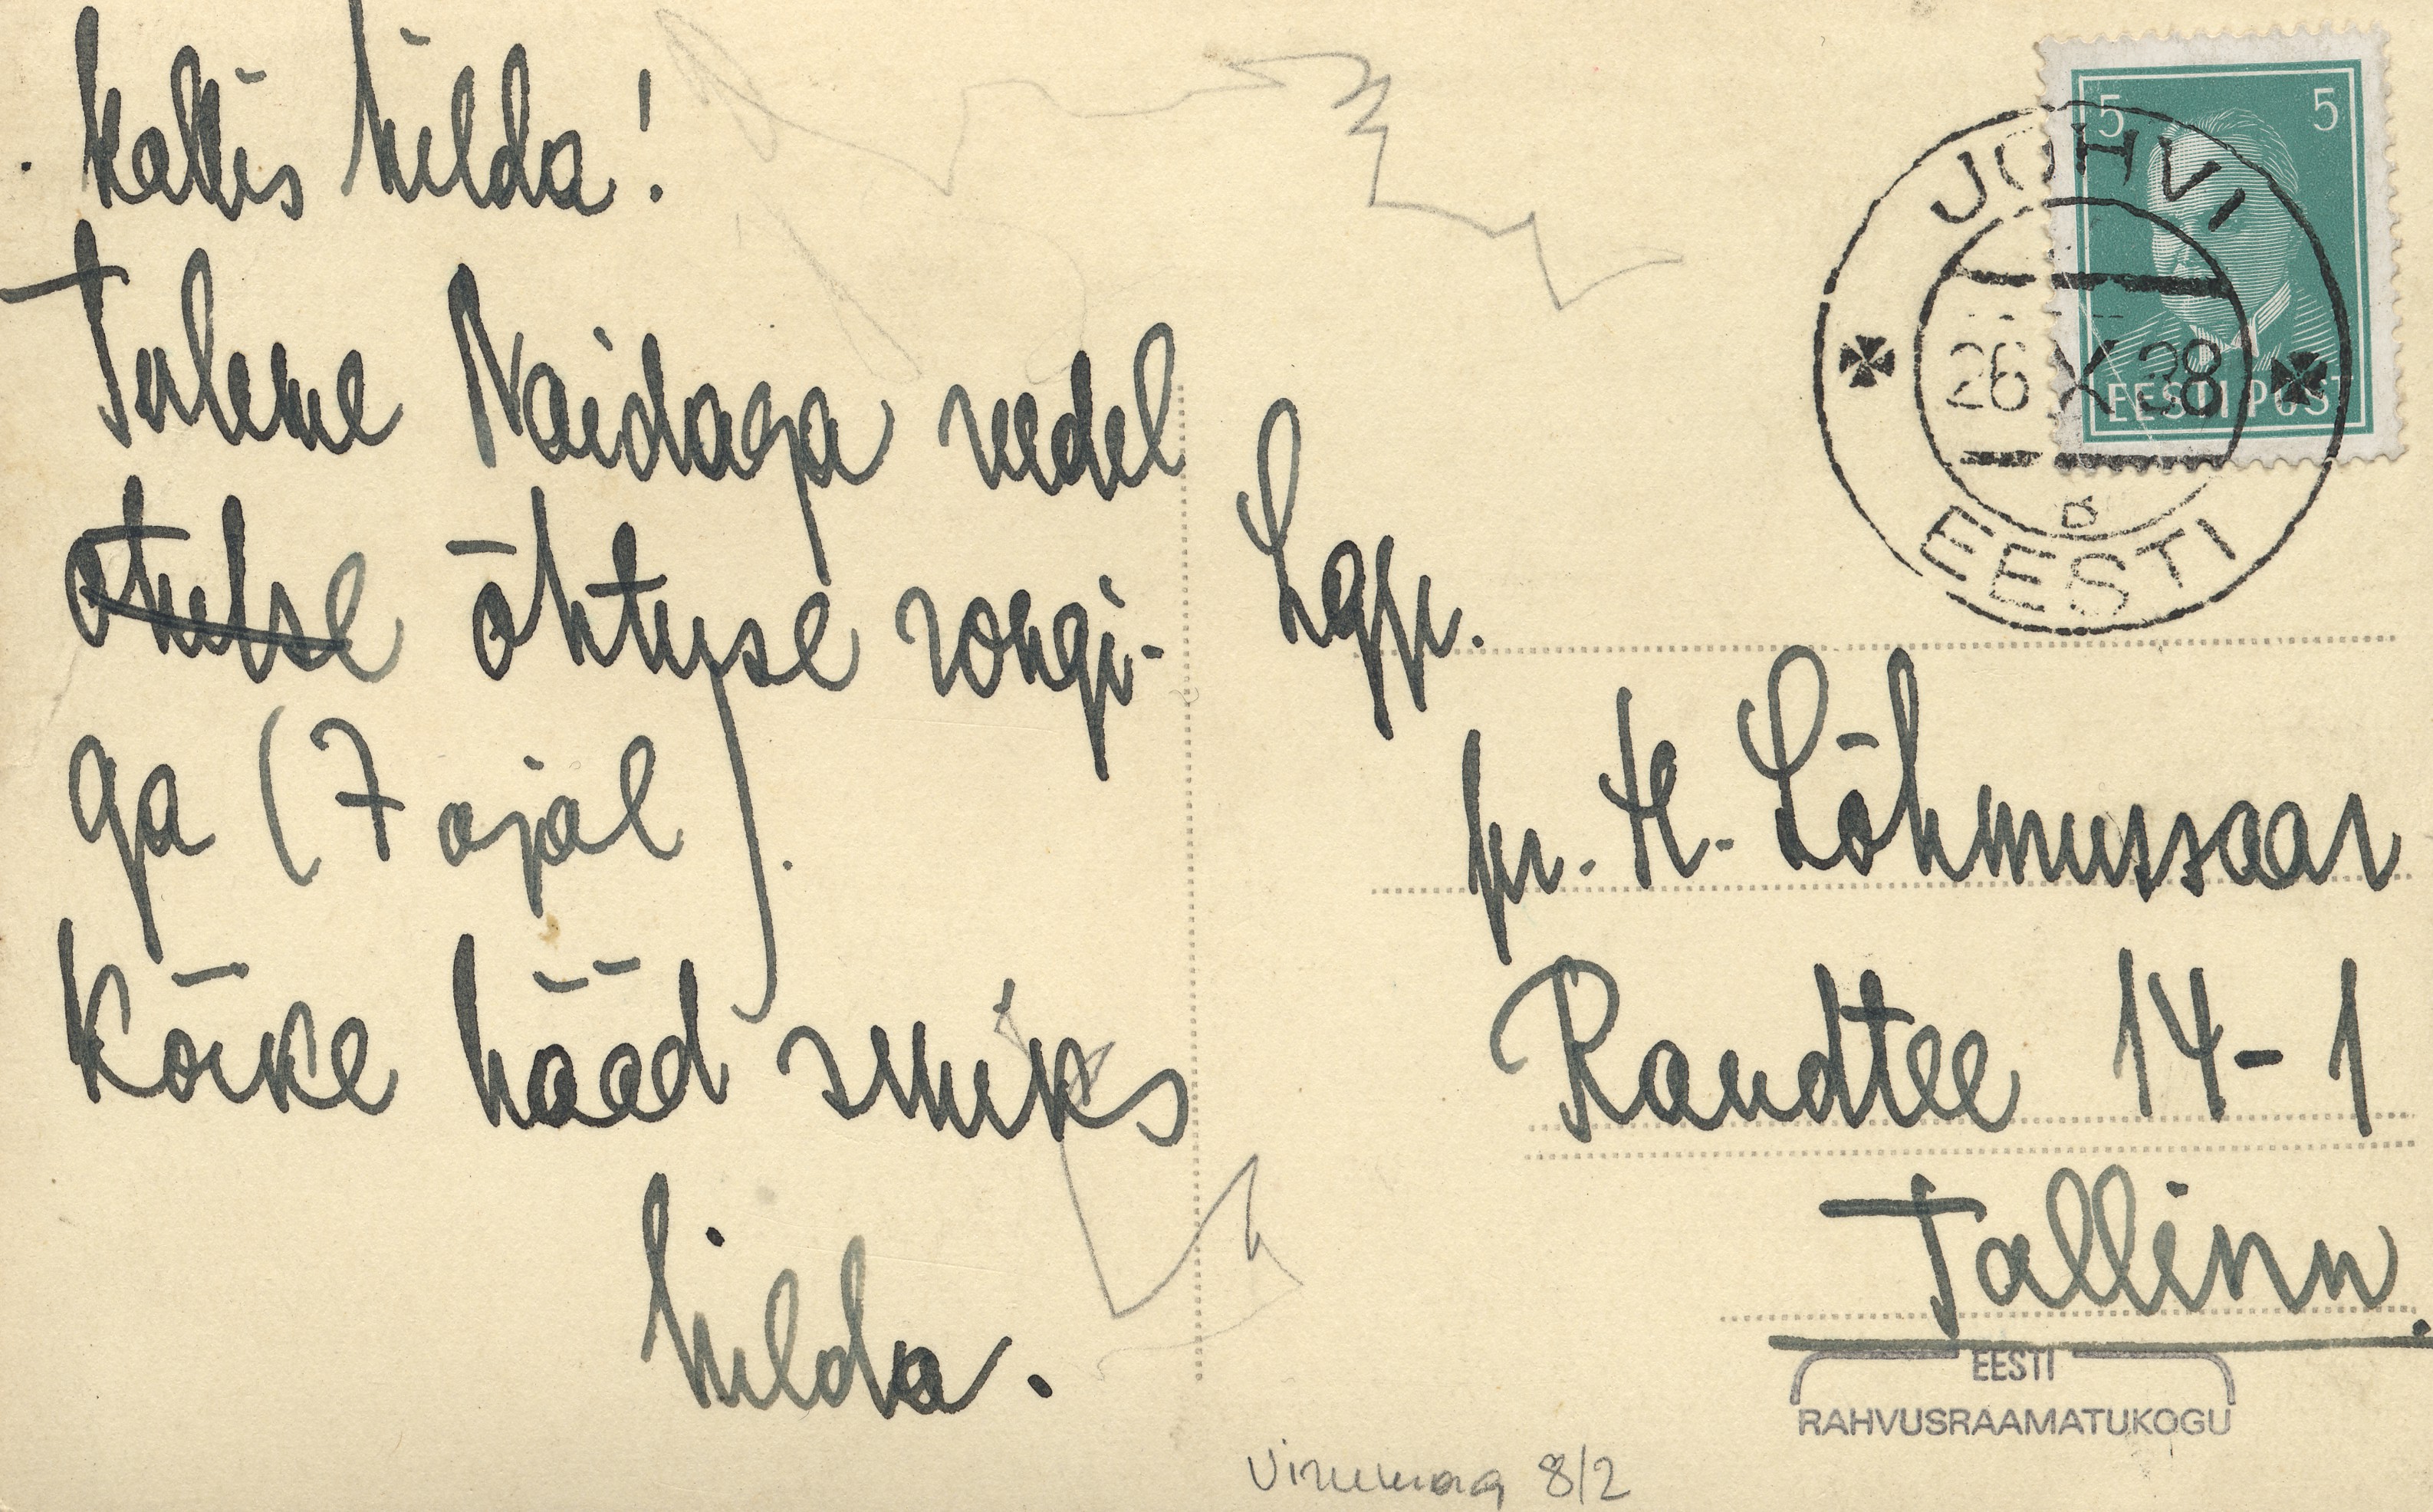 Kallis Hilda!
Tuleme Naidaga reedel
õhtuse rongi-
ga (7 ajal).
Kõike hääd sinuks
Hilda.
Lgp.
pr. H. Lõhmussaar
Raudtee 14-1
Tallinn.
5 5
EESTI POST
JÕHVI
26 X 38
B
EESTI
EESTI
RAHVUSRAAMATUKOGU
Virumaa 8/2